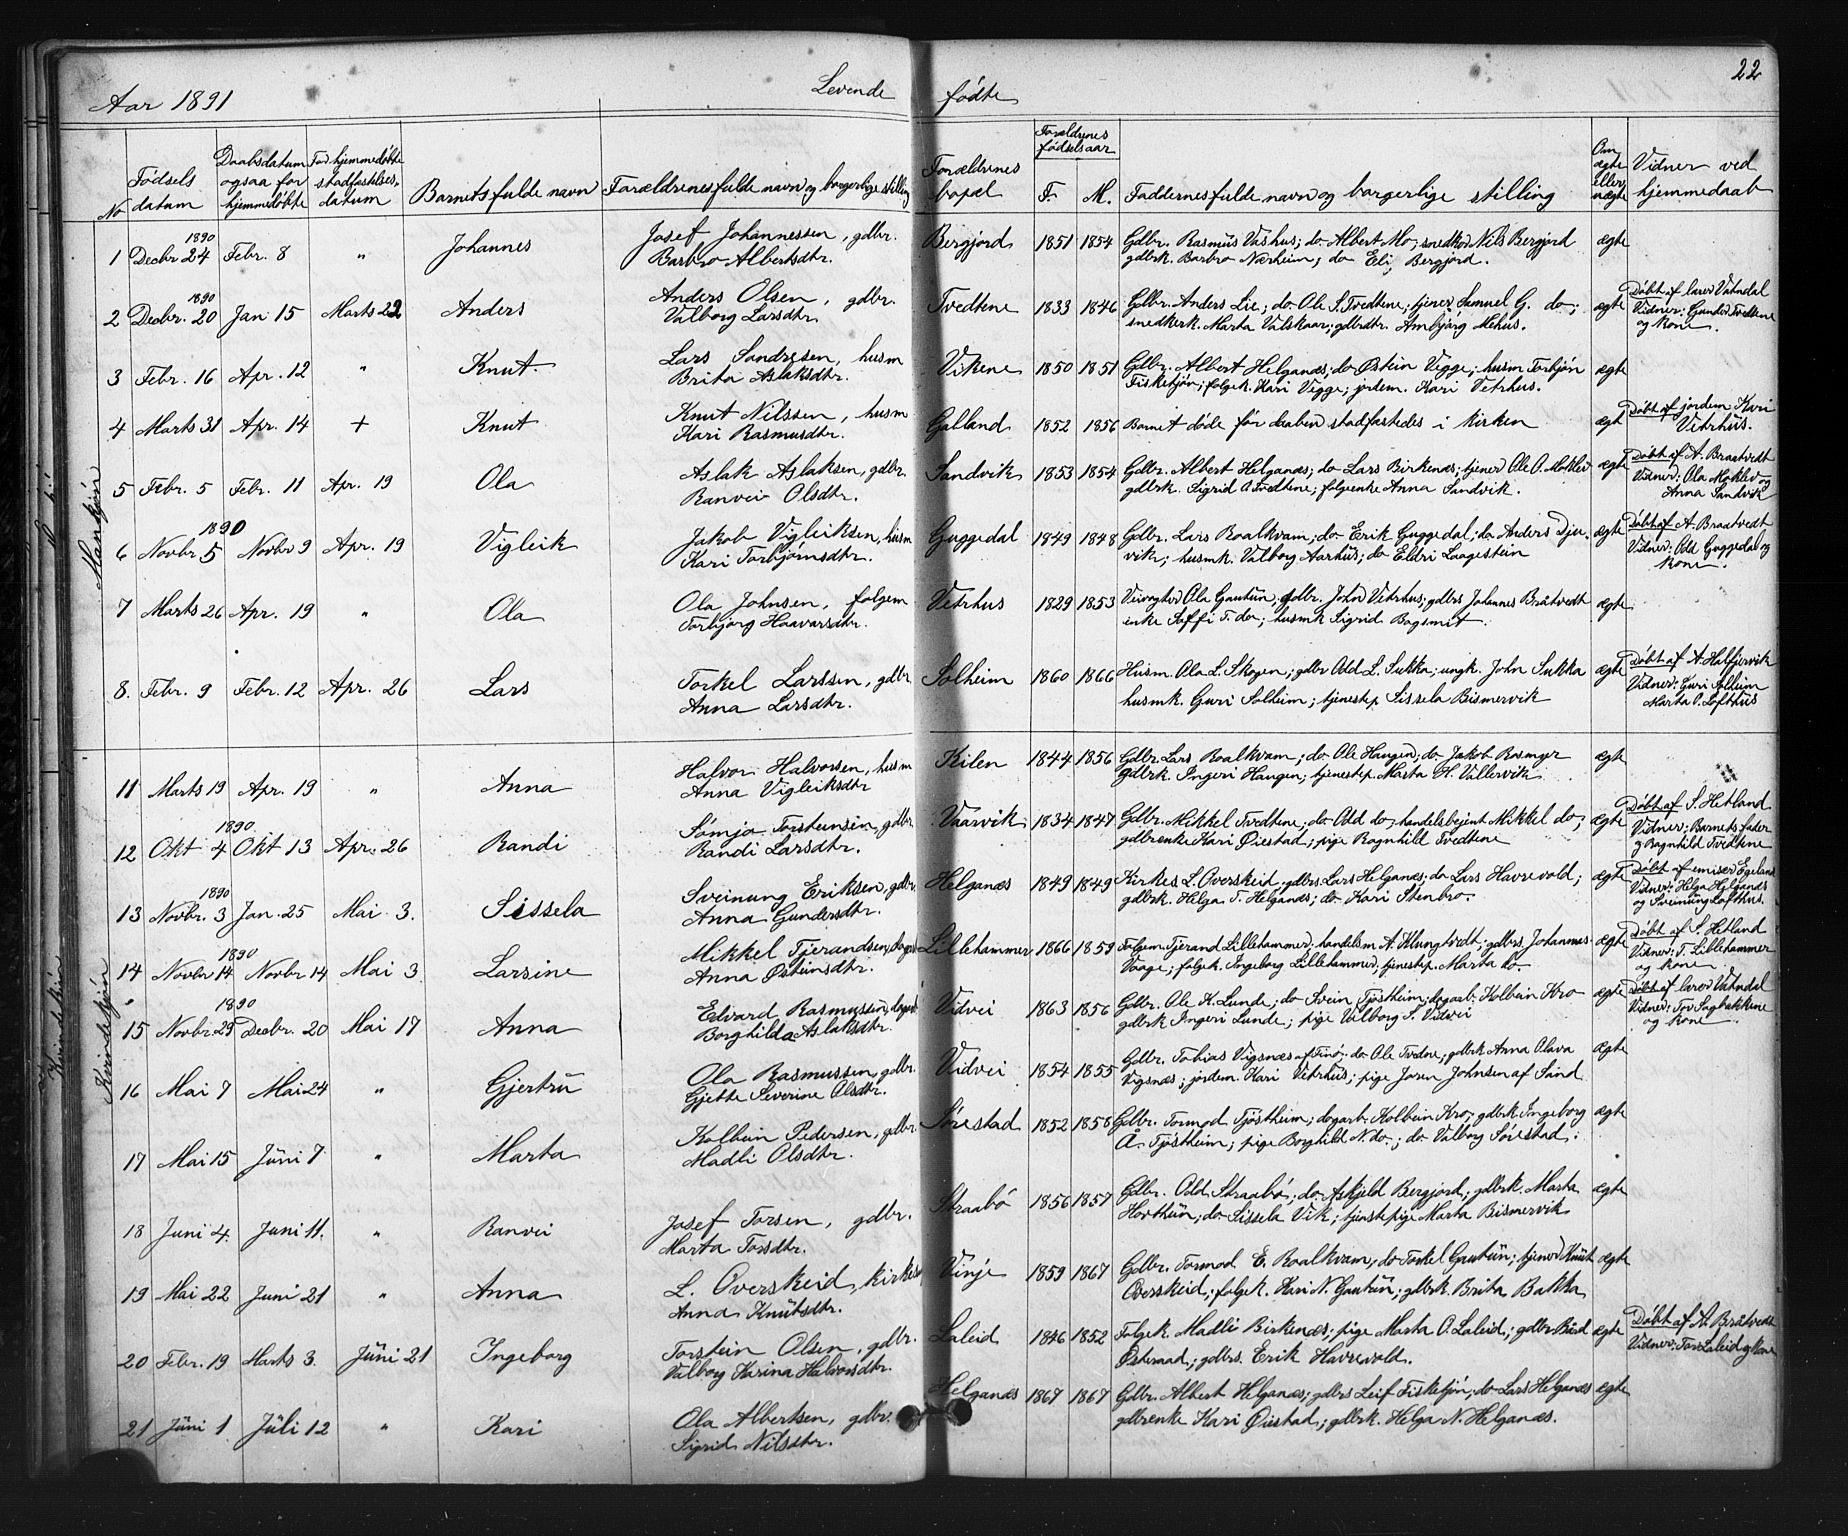 22
Aar 1891 Levende fødte
No Fødsels datum Daabsdatum ogsaa for hjemmedøbte For hjemmedøbte stadfæstelses-datum Barnets fulde navn Forældrenes fulde navn og borgerlige stilling Forældrenes bopæl Forældrenes fødselsaar F. M. Faddernes fulde navn og borgerlige stilling Om ægte eller uægte Vidner ved hjemmedaab
Mankjön
1 Decbr 1890 24 Febr. 8 " Johannes Josef Johannessen, gdbr. Bergjord 1851 1854 Gdbr. Rasmus Vashus; do Albert Mo; snedker Nils Bergjord ægte
Barbro Albertsdtr. gdbrk. Barbro Nærheim; do Eli Bergjord.
2 Decbr. 1890 20 Jan 15 Marts 22 Anders Anders Olsen, gdbr. Tvedtene 1833 1846 Gdbr. Anders Lie; do Ole S. Tvedtene; tjener Samuel G. do; ægte Døbt af lærer Vatndal
Valborg Larsdtr. snedkerk. Marta Valskaar; gdbrdtr. Ambjørg Mehus. Vidner: Gunder Tvedtene og kone.
3 Febr. 16 Apr. 12 " Knut Lars Sandresen, husm Vikene 1850 1851 Gdbr. Albert Helganæs; do Østein Vegge; husm Torbjön ægte
Brita Aslaksdtr. Fisketjön; folgek. Kari Vegge; jordem. Kari Vetrhus.
4 Marts 31 Apr. 14 + Knut Knut Nilssen, husm Galland 1852 1856 Barnet døde før daaben stadfæstedes i kirken ægt Døbt af jordem Kari Vetrhus.
Kari Rasmusdtr.
5 Febr. 5 Febr. 11 Apr. 19 Ola Aslak Aslaksen, gdbr. Sandvik 1853 1854 Gdbr. Albert Helganæs; do Lars Birkenæs; tjener Ole O. Moklev ægte Døbt af A. Braatvedt
Ranvei Olsdtr. gdbrk. Sigrid A Tvedtene; folgeenke Anna Sandvik. Vidner: Ola Moklev og Anna Sandvik
6 Novbr. 1890 5 Novbr 9 Apr. 19 Vigleik Jakob Vigleiksen, husm Guggedal 1849 1848 Gdbr. Lars Roalkvam; do Erik Guggedal; do Anders Dju- ægte Døbt af A. Braatvedt
Kari Torbjørnsdtr. vik; husmk. Valborg Aarhus; do Eldri Laagestein Vidner: Odd Guggedal og kone.
7 Marts 26 Apr. 19 " Ola Ola Johnsen, folgem Vetrhus 1829 1853 Veivogter Ola Gautun; gdbr. John Vetrhus; gdbrs Johannes Bråtvedt ægte
Torbjørg Haavarsdtr. enke Soffi T. do; husmk Sigrid Bogsmit.
8. Febr. 9 Febr. 12 Apr. 26 Lars Torkel Larssen, gdbr. Solheim 1860 1866 Husm. Ola L. Skogen; gdbr Odd L. Sukka; ungk. John Sukka ægte Døbt af A. Halfjervik
Anna Larsdtr. husmk. Guri Solheim; tjenestep Sissela Bismervik Vidner: Guri Solheim Marta O. Lofthus
Kvindekjön
11 Marts 19 Apr. 19 " Anna Halvor Halvorsen, husm Kilen 1844 1856 Gdbr. Lars Roalkvam; do Ole Haugen; do Jakob Rosmyr ægte
Anna Vigleiksdtr gdbrk. Ingeri Haugen; tjenestep. Marta H. Villervik
12 Okt 1890 4 Okt 13 Apr. 26 Randi Sømja Torsteinsen, gdbr. Vaarvik 1834 1847 Gdbr. Mikkel Tvedtene; do Odd do; handelsbetjent Mikkel do; ægte Døbt af S. Hetland
Randi Larsdtr. gdbrenke Kari Øiestad; pige Ragnhild Tvedtene Vidner; Barnets fader og Ragnhild Tvedtene
13 Novbr. 1890 3 Jan. 25 Mai 3. Sissela Sveinung Eriksen, gdbr Helganæs 1849 1849 Kirkes L. Overskeid; gdbrs Lars Helganæs; do Lars Havrevold; ægte Døbt af emiser Egeland
Anna Gundersdtr. gdbrk. Helga T. Helganæs; do Kari Stenbro. Vidner: Helga Helganæs og Sveinung Lofthus.
14 Novbr 1890 14 Novbr 14 Mai 3 Larsine Mikkel Tjerandsen, dagarb Lillehammer 1866 1859 Folgem Tjerand Lillehammer; handelsm A. Klungtvedt; gdbrs. Johannes ægte Døbt af S. Hetland
Anna Østeinsdtr. Vaage; folgek. Ingeborg Lillehammer, tjenestep. Marta do. Vidner: T. Lillehammer og kone
15 Novbr. 1890 29 Decbr. 20 Mai 17 Anna Edvard Rasmussen, dagarb Vidvei 1863 1856 Gdbr. Ole K. Lunde; do Svein Tjöstheim; dagarb. Kolbein Kro ægte Døbt af lærer Vatndal
Borghilda Aslaksdtr. gdbrk Ingeri Lunde; pige Valborg S. Vidvei Vidner: Tor Sagbakkene og kone
16 Mai 7 Mai 24 " Gjertru Ola Rasmussen, gdbr. Vidvei 1854 1855 Gdbr. Tobias Vigsnæs af Finö; do Ole Tvedne; gdbrk Anna Olava ægte
Gjette Severine Olsdtr. Vigsnæs; jordem. Kari Vetrhus; pige Joren Johnsen af Sand
17 Mai 15 Juni 7 " Marta Kolbein Pedersen, gdbr. Sörestad 1852 1858 Gdbr. Tormod Tjöstheim; dagarb. Kolbein Kro; gdbrk Ingeborg ægte
Madli Olsdtr. Å. Tjöstheim; pige Borghild N. do.; do Valborg Sörestad.
18 Juni 4. Juni 11. " Ranvei Josef Torsen, gdbr. Straabö 1856 1857 Gdbr. Odd Straabö; do Askjeld Bergjord; gdbrk. Marta ægte
Marta Torsdtr. Hovthun; do Sissela Vik; tjenstepige Marta Bismervik
19 Mai 22 Juni 21 " Anna L. Overskeid, kirkes Vinje 1859 1867 Gdbr. Tormod E. Roalkvam, do Torkel Gautun; tjener Knut ægte
Anna Knutsdtr. Overskeid; folgek. Kari N. Gautun; gdbrk. Brita Bakka
20 Febr. 19 Marts 3. Juni 21 Ingeborg Torstein Olsen, gdbr. Laleid 1846 1852 Folgek. Madli Birkenæs; pige Marta O. Laleid; gdbr Bård ægte Døbt af A. Bråtvedt
Valborg Karina Halvorsdtr. Østeraad; gdbrs. Erik Havrevold. Vidner: Tor Laleid og kone
21 Juni 1 Juli 12 " Kari Ola Albertsen, gdbr. Helganæs 1867 1867 Gdbr. Albert Helganæs; gdbrs Leif Fisketjön; do Lars Helganæs ægte
Sigrid Nilsdtr. gdbrenke Kari Øiestad; gdbrk. Helga N. Helganæs.